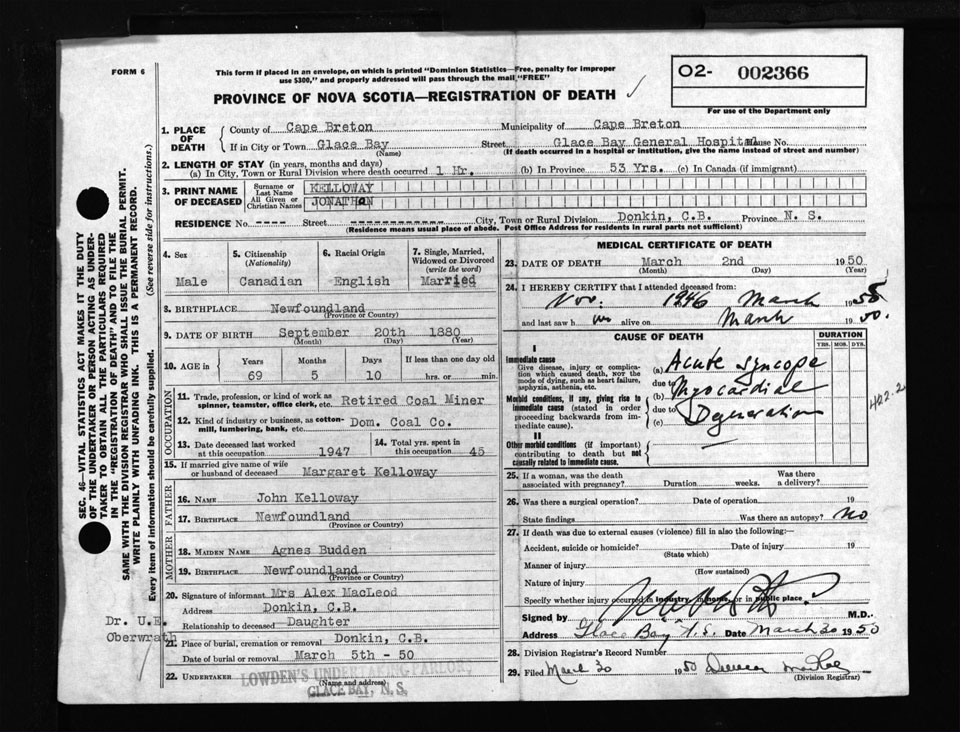 FORM 6
This form if placed in an envelope, on which is printed "Dominion Statistics—Free, penalty for improper
use $300," and properly addressed will pass through the mail "FREE"
PROVINCE OF NOVA SCOTIA—REGISTRATION OF DEATH
02- 002366
For use of the Department only
SEC. 46—VITAL STATISTICS ACT MAKES IT THE DUTY
OF THE UNDERTAKER OR PERSON ACTING AS UNDER-
TAKER TO OBTAIN ALL THE PARTICULARS REQUIRED
IN THE "REGISTRATION OF DEATH" AND TO FILE THE
SAME WITH THE DIVISION REGISTRAR WHO SHALL ISSUE THE BURIAL PERMIT.
WRITE PLAINLY WITH UNFADING INK. THIS IS A PERMANENT RECORD.
Every item of information should be carefully supplied. (See reverse side for instructions.)
1. PLACE OF DEATH
County of Cape Breton Municipality of Cape Breton
If in City or Town Glace Bay Street Glace Bay General Hospital House No.
(Name) (If death occurred in a hospital or institution, give the name instead of street and number)
2. LENGTH OF STAY (in years, months and days)
(a) In City, Town or Rural Division where death occurred 1 Hr. (b) In Province 53 Yrs. (c) In Canada (if immigrant)
3. PRINT NAME OF DECEASED
Surname or Last Name KELLOWAY
All Given or Christian Names JONATHAN
RESIDENCE No. ---- Street ------------- City, Town or Rural Division Donkin, C.B. Province N. S.
(Residence means usual place of abode. Post Office Address for residents in rural parts not sufficient)
4. Sex
Male
5. Citizenship (Nationality)
Canadian
6. Racial Origin
English
7. Single, Married, Widowed or Divorced (write the word)
Married
8. BIRTHPLACE Newfoundland
(Province or Country)
9. DATE OF BIRTH September 20th 1880
(Month) (Day) (Year)
10. AGE in
Years Months Days If less than one day old
69 5 10 hrs. or min.
OCCUPATION
11. Trade, profession, or kind of work as spinner, teamster, office clerk, etc. Retired Coal Miner
12. Kind of industry or business, as cotton-mill, lumbering, bank, etc. Dom. Coal Co.
13. Date deceased last worked at this occupation 1947
14. Total yrs. spent in this occupation 45
15. If married give name of wife or husband of deceased Margaret Kelloway
FATHER
16. NAME John Kelloway
17. BIRTHPLACE Newfoundland
(Province or Country)
MOTHER
18. MAIDEN NAME Agnes Budden
19. BIRTHPLACE Newfoundland
(Province or Country)
20. Signature of informant Mrs Alex MacLeod
Address Donkin, C.B.
Relationship to deceased Daughter
Dr. U.E.
Oberwrath
21. Place of burial, cremation or removal Donkin, C.B.
Date of burial or removal March 5th - 50
22. UNDERTAKER LOWDEN'S UNDERTAKING PARLORS
(Name and address)
GLACE BAY, N. S.
MEDICAL CERTIFICATE OF DEATH
23. DATE OF DEATH March 2nd 1950
(Month) (Day) (Year)
24. I HEREBY CERTIFY that I attended deceased from:
Nov. 1946 March 1950
and last saw h im alive on March 1950.
CAUSE OF DEATH
DURATION
YRS. MOS. DYS.
I
Immediate cause
Give disease, injury or complication which caused death, NOT the mode of dying, such as heart failure, asphyxia, asthenia, etc.
(a) Acute Syncope
due to
Morbid conditions, if any, giving rise to immediate cause (stated in order proceeding backwards from immediate cause).
(b) Myocardial
due to
(c) Degeneration
422-2
II
Other morbid conditions (if important) contributing to death but not causally related to immediate cause.
25. If a woman, was the death associated with pregnancy? Duration weeks. Was there a delivery?
26. Was there a surgical operation? Date of operation 19
State findings Was there an autopsy? No
27. If death was due to external causes (violence) fill in also the following:—
Accident, suicide or homicide? Date of injury 19
(State which)
Manner of injury
(How sustained)
Nature of injury
Specify whether injury occurred in industry, in home, or in public place
Signed by M.D.
Address Glace Bay N.S. Date March 30 1950
28. Division Registrar's Record Number
29. Filed March 30 1950
(Division Registrar)